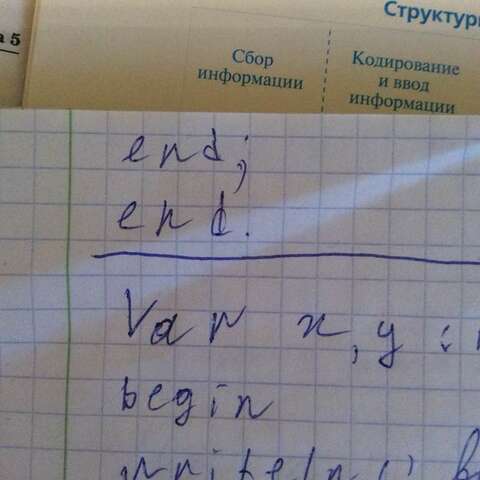 Структуры
а 5
Сбор
информации
Кодирование
и ввод
информации
end;
end.
Var x, y :
begin
writeln ('